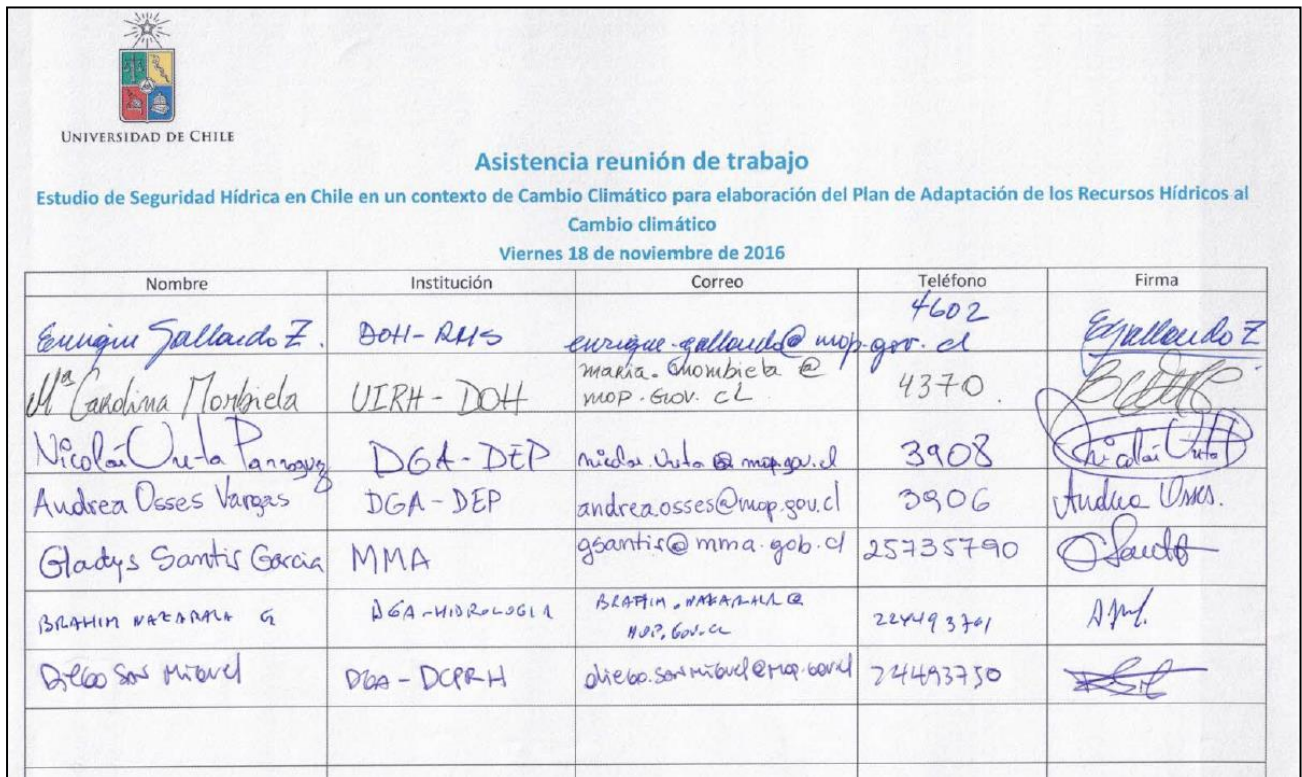 UNIVERSIDAD DE CHILE
Asistencia reunión de trabajo
Estudio de Seguridad Hídrica en Chile en un contexto de Cambio Climático para elaboración del Plan de Adaptación de los Recursos Hídricos al
Cambio climático
Viernes 18 de noviembre de 2016
Nombre Institución Correo Teléfono Firma
Enrique Gallardo Z. DOH-RMS enrique.gallardo@mop.gov.cl 4602 EGallardo Z
Mª Carolina Morbiela UIRH-DOH maria.mombiela@
MOP.GOV.CL 4370
Nicolás Ureta DGA-DEP nicolas.Ureta@mop.gov.cl 3908 Nicolás
Andrea Osses Vargas DGA-DEP andrea.osses@mop.gov.cl 3906 Andrea Osses.
Gladys Santis Garcia MMA gsantis@mma.gob.cl 25735790
BRAHIM NAZARALA G DGA-HIDROLOGIA BRAHIM.NAZARALA@
MOP.GOV.CL 224493761
Diego San Miguel DGA-DCPRH diego.sanmiguel@mop.gov.cl 224493750